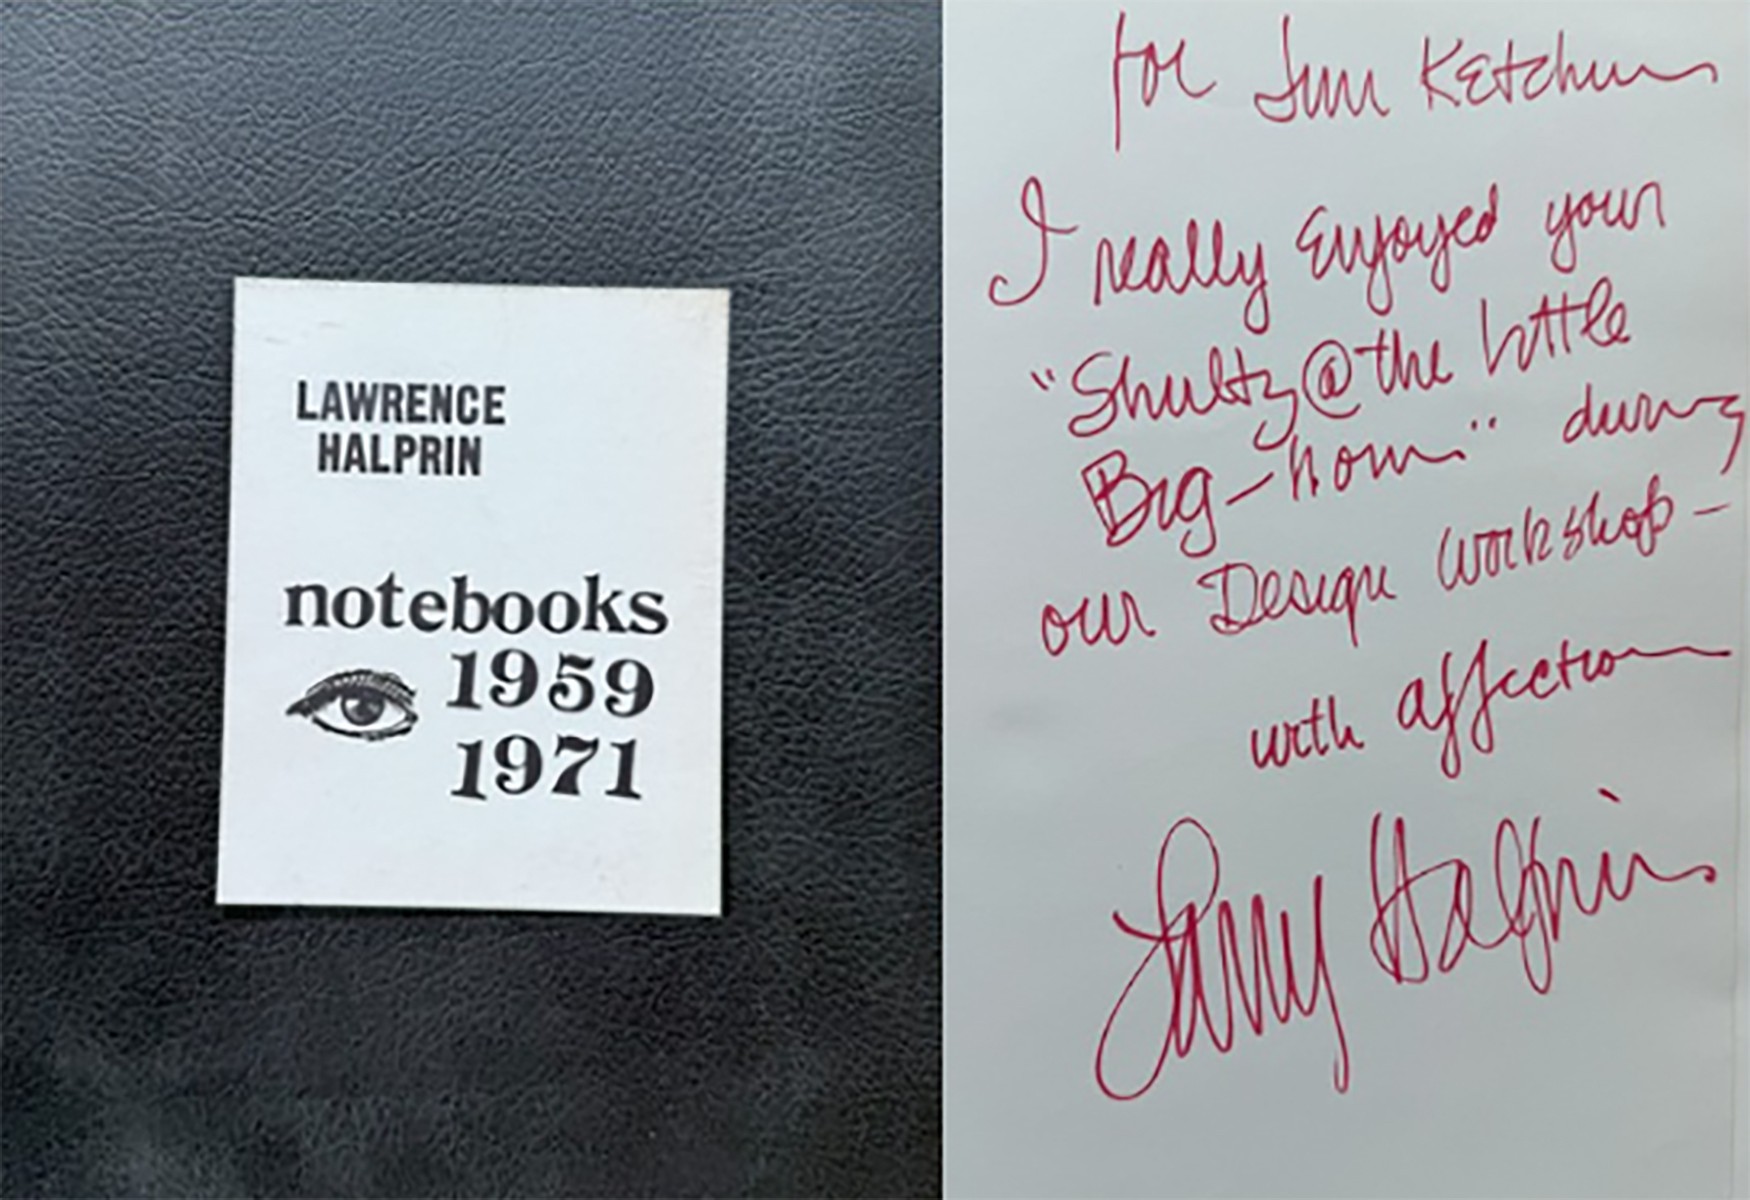 LAWRENCE
HALPRIN
notebooks
1959
1971
for Jim Ketchum
I really Enjoyed your
"Shultz @ the little
Big-horn" during
our Design workshop -
with affection
Larry Halprin